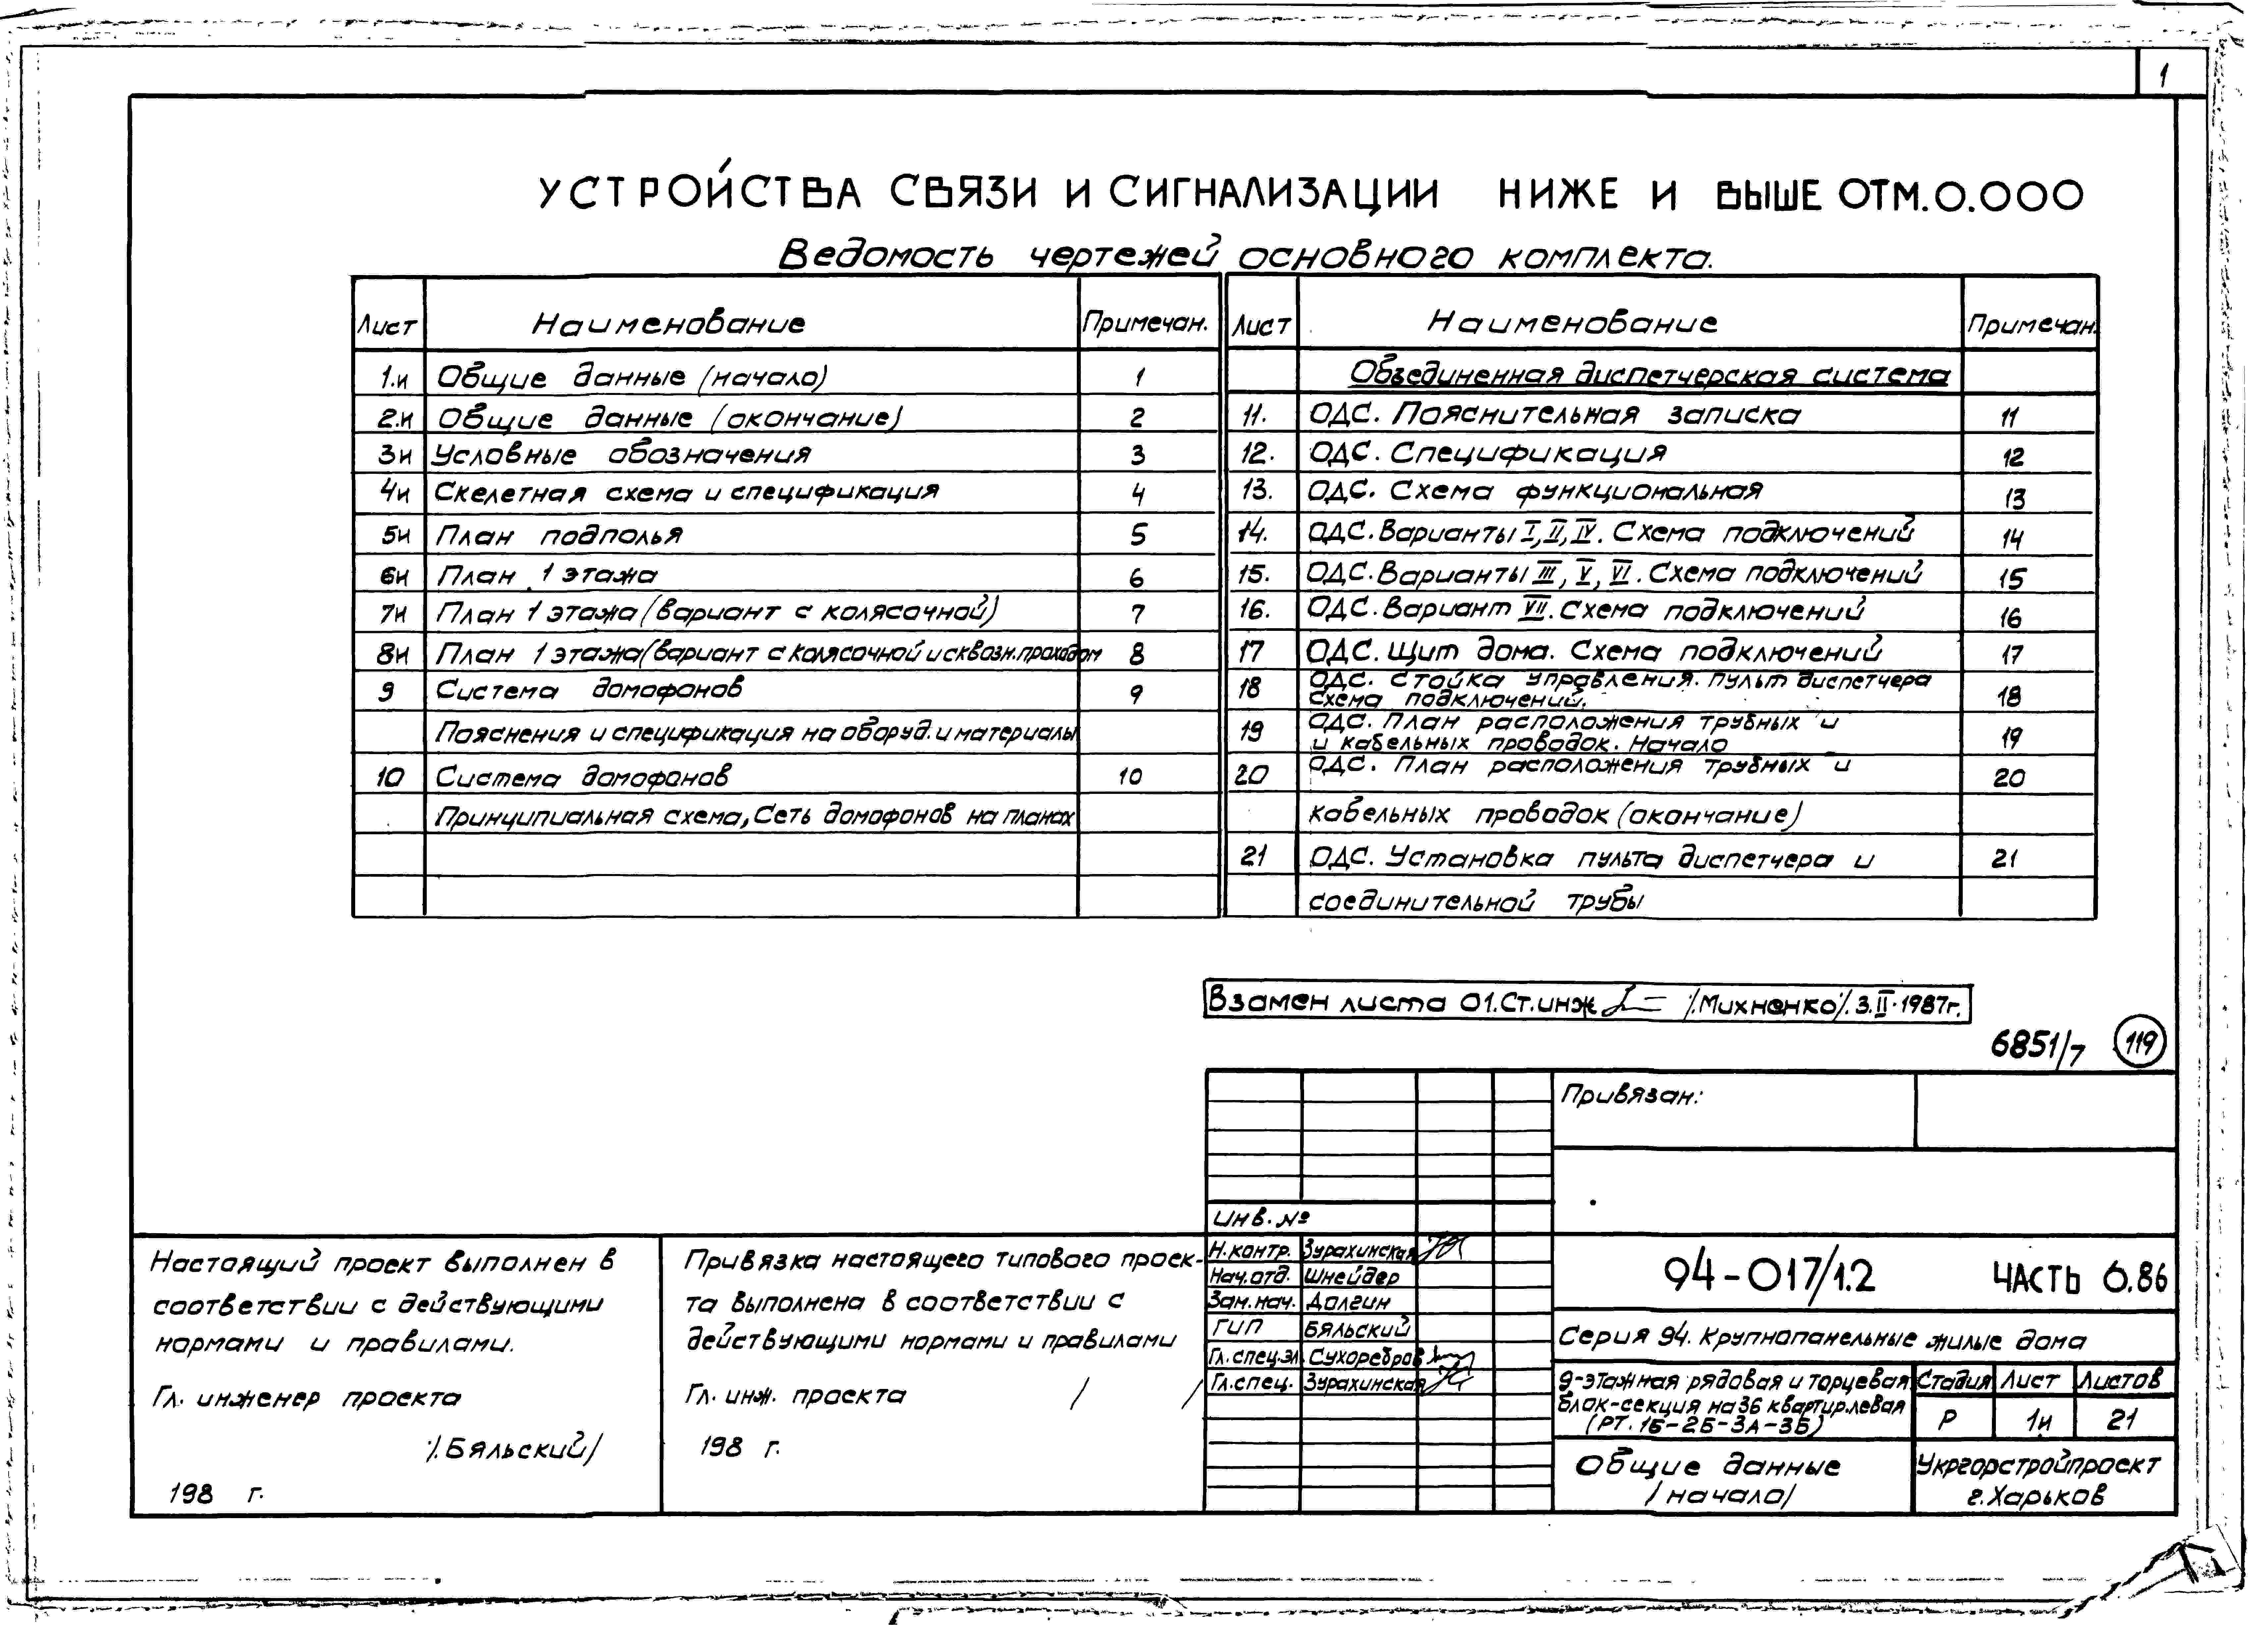 1
УСТРОЙСТВА СВЯЗИ И СИГНАЛИЗАЦИИ НИЖЕ И ВЫШЕ ОТМ.0.000
Ведомость чертежей основного комплекта.
Лист Наименование Примечан.
1.и Общие данные (начало) 1
2.и Общие данные (окончание) 2
3и Условные обозначения 3
4и Скелетная схема и спецификация 4
5и План подполья 5
6и План 1 этажа 6
7и План 1 этажа (вариант с колясочной) 7
8и План 1 этажа (вариант с колясочной и сквозн. проходом 8
9 Система домофонов 9
Пояснения и спецификация на оборуд. и материалы
10 Система домофонов 10
Принципиальная схема, Сеть домофонов на планах
Лист Наименование Примечан.
Объединенная диспетчерская система
11. ОДС. Пояснительная записка 11
12. ОДС. Спецификация 12
13. ОДС. Схема функциональная 13
14. ОДС. Варианты I, II, IV. Схема подключений 14
15. ОДС. Варианты III, V, VI. Схема подключений 15
16. ОДС. Вариант VII. Схема подключений 16
17 ОДС. Щит дома. Схема подключений 17
18 ОДС. Стойка управления. Пульт диспетчера 18
Схема подключений.
19 ОДС. План расположения трубных и 19
и кабельных проводок. Начало
20 ОДС. План расположения трубных и 20
кабельных проводок (окончание)
21 ОДС. Установка пульта диспетчера и 21
соединительной трубы
Взамен листа 01. Ст. инж /Михненко/. 3.II.1987г.
6851/7 119
Привязан:
Инв. №
Настоящий проект выполнен в
соответствии с действующими
нормами и правилами.
Гл. инженер проекта
/. Бяльский/
198 г.
Привязка настоящего типового проек-
та выполнена в соответствии с
действующими нормами и правилами
Гл. инж. проекта / /
198 г.
Н. контр. Зурахинская
Нач. отд. Шнейдер
Зам. нач. Долгин
ГИП Бяльский
Гл. спец. эл. Сухоребров
Гл. спец. Зурахинская
94-017/1.2 ЧАСТЬ 0.86
Серия 94. Крупнопанельные жилые дома
9-этажная рядовая и торцевая
блок-секция на 36 квартир левая
(РТ. 1Б-2Б-3А-3Б)
Стадия Лист Листов
Р 1и 21
Общие данные
/начало/
Укргорстройпроект
г. Харьков